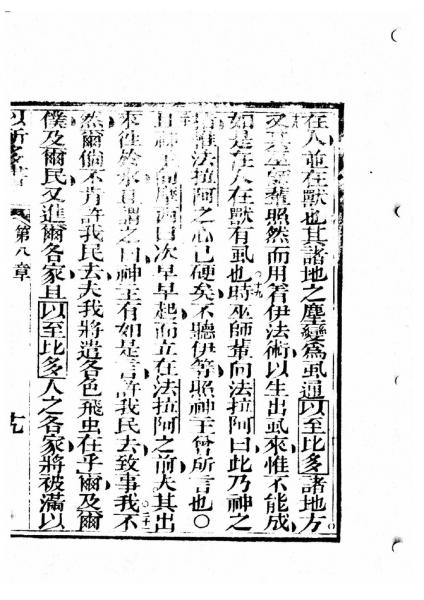 在人並在獸也其諸地之塵變為虱通以至比多諸地方
又其巫師輩照然而用着伊法術以生出虱來惟不能成
如是在人在獸有虱也十九時巫師輩向法拉阿曰此乃神之
指惟法拉阿之心已硬矣不聽伊等照神主曾所言也〇
二十神主向摩西曰次早早起而立在法拉阿之前夫其出
來往於水且謂之曰神主有如是言許我民去致事我不
二一然爾倘不肯許我民去夫我將遣各色飛虫在乎爾及爾
僕及爾民又進爾各家且以至比多人之各家將被滿以
以所多書 第八章 十九